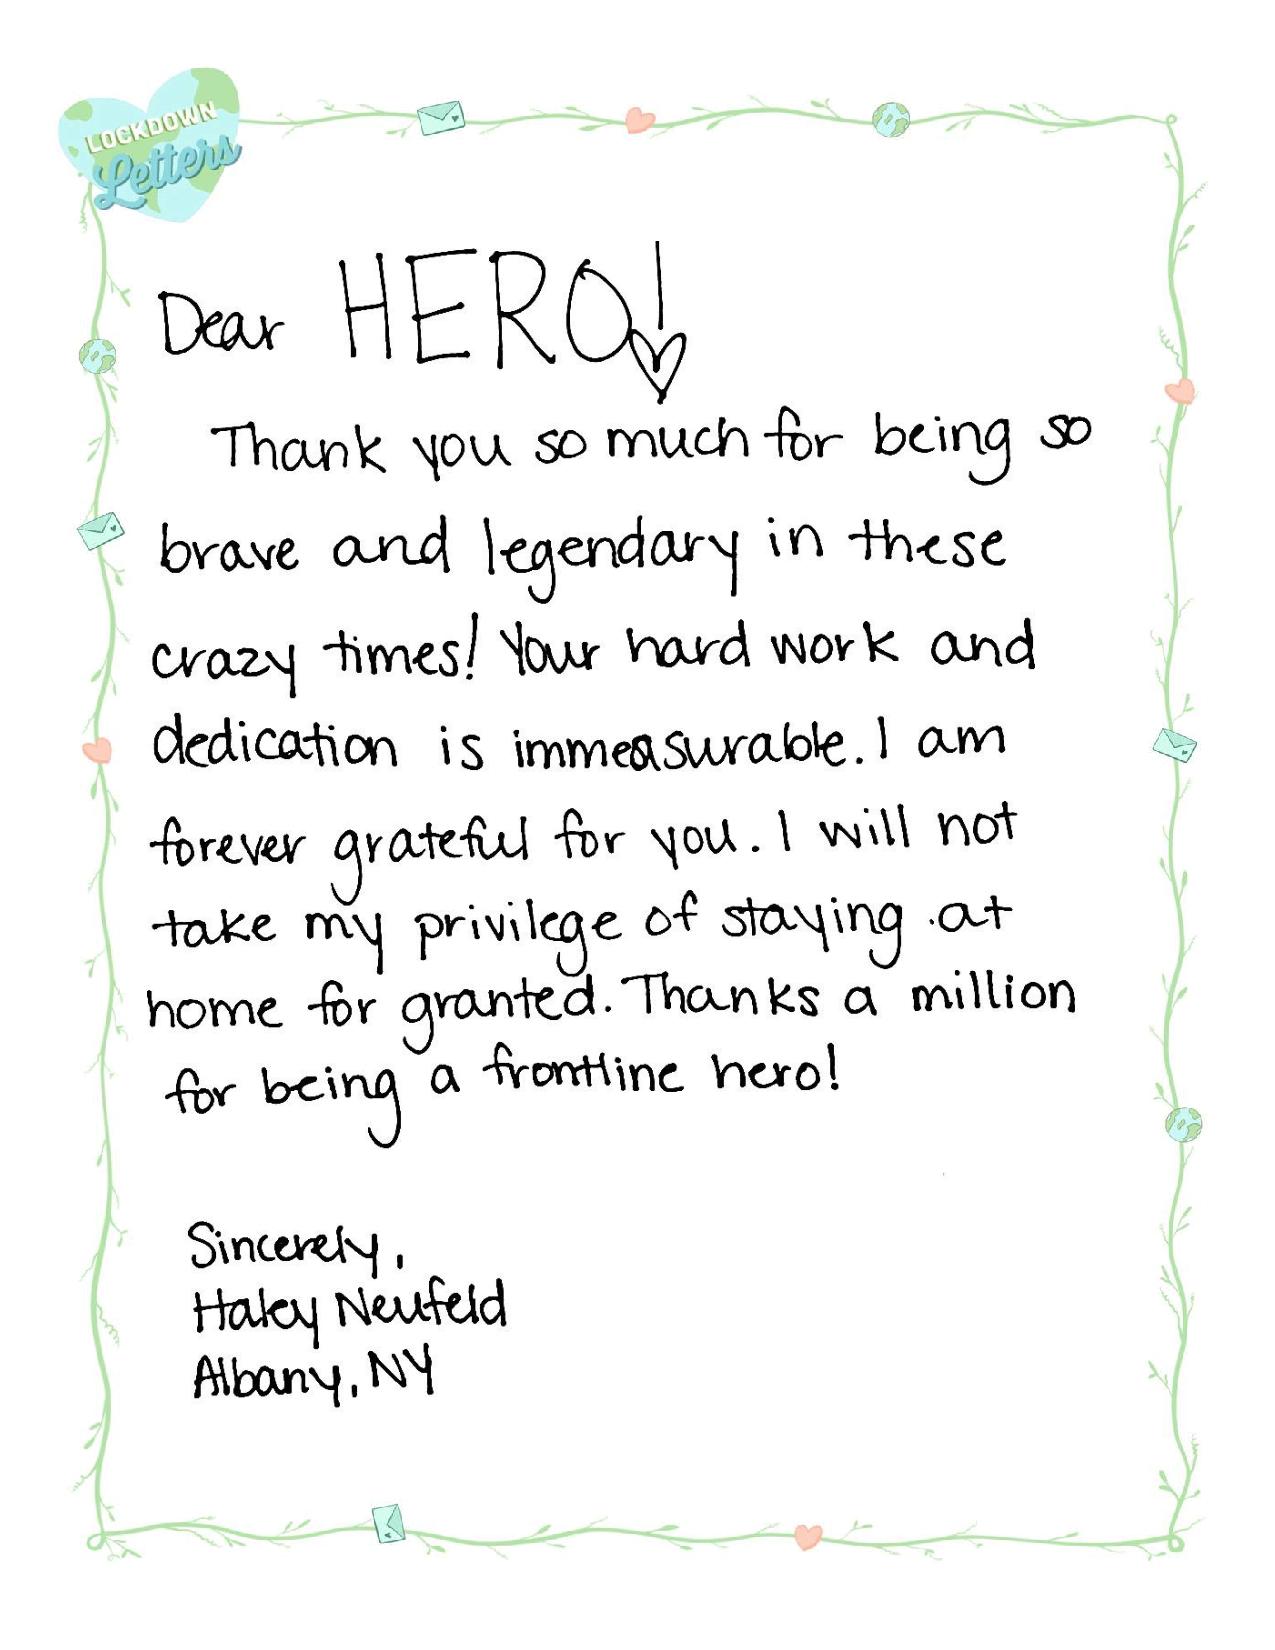 LOCKDOWN
Letters
Dear HERO!
Thank you so much for being so
brave and legendary in these
crazy times! Your hard work and
dedication is immeasurable. I am
forever grateful for you. I will not
take my privilege of staying at
home for granted. Thanks a million
for being a frontline hero!
Sincerely,
Haley Neufeld
Albany, NY